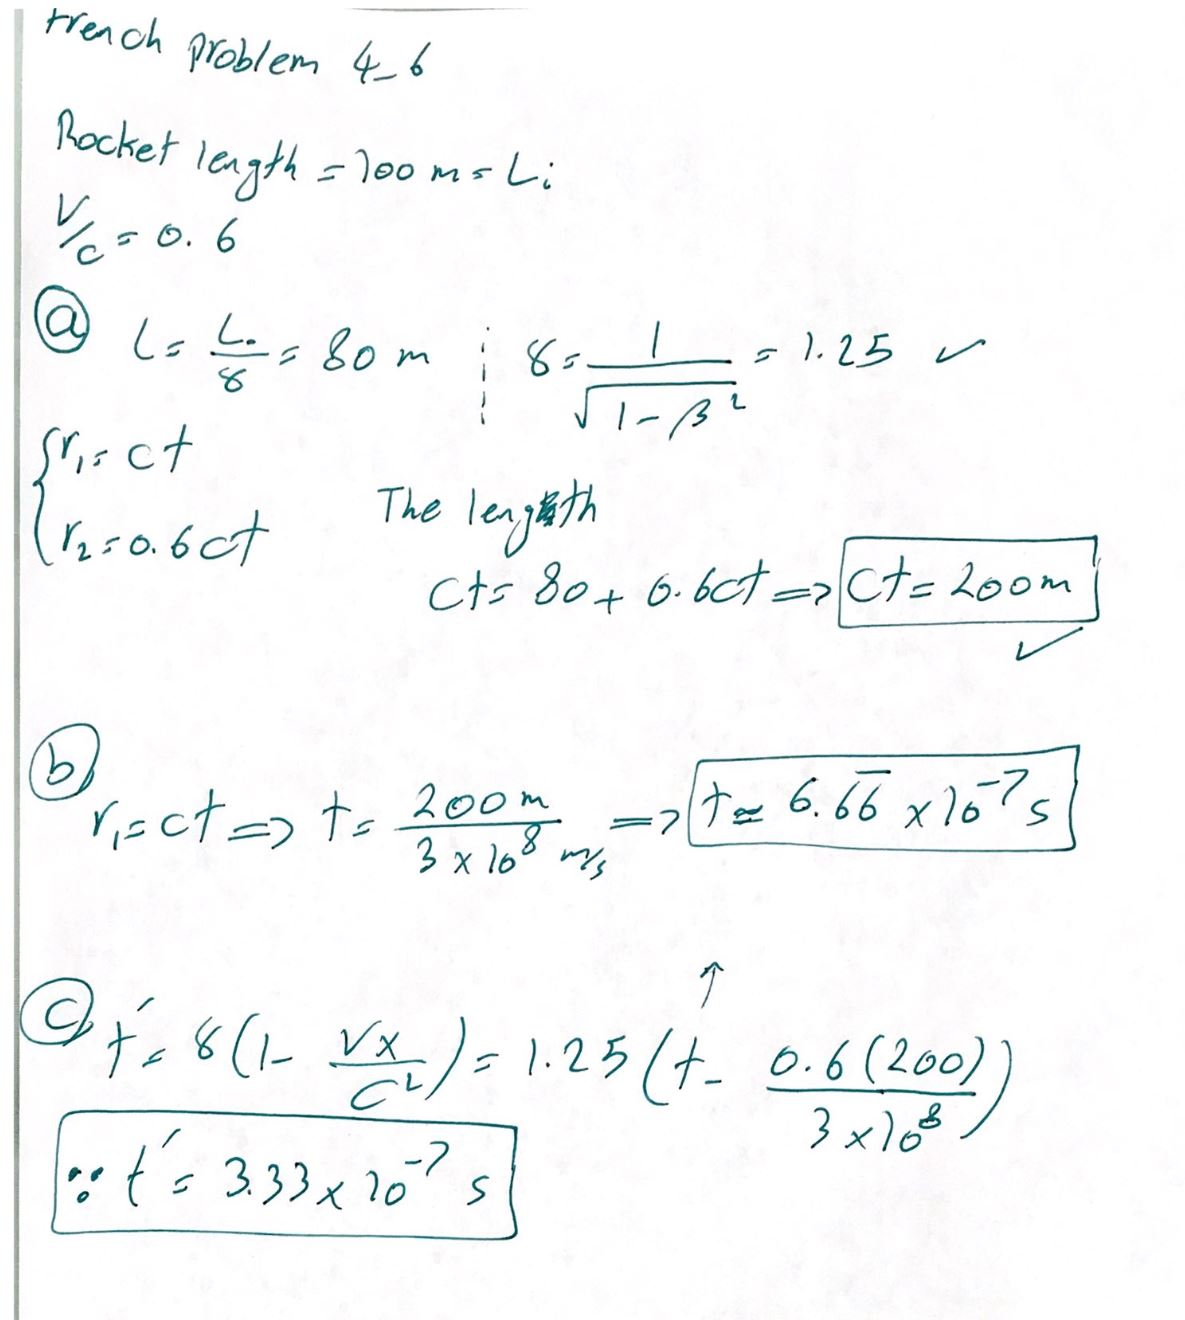 french problem 4-6
Rocket length = 100 m = Li
V/c = 0.6
(a) L = L₀/γ = 80 m ¦ γ = 1/√(1-β²) = 1.25 ✓
{r₁ = ct
r₂ = 0.6ct
The length
ct = 80 + 0.6ct => ct = 200m
✓
(b)
r₁ = ct => t = 200m/(3 x 10⁸ m/s) => t ≃ 6.6̅6̅ x 10⁻⁷ s
↑
(c) t′ = γ(1 - Vx/c²) = 1.25 (t - 0.6(200)/(3 x 10⁸))
∵ t′ = 3.33 x 10⁻⁷ s